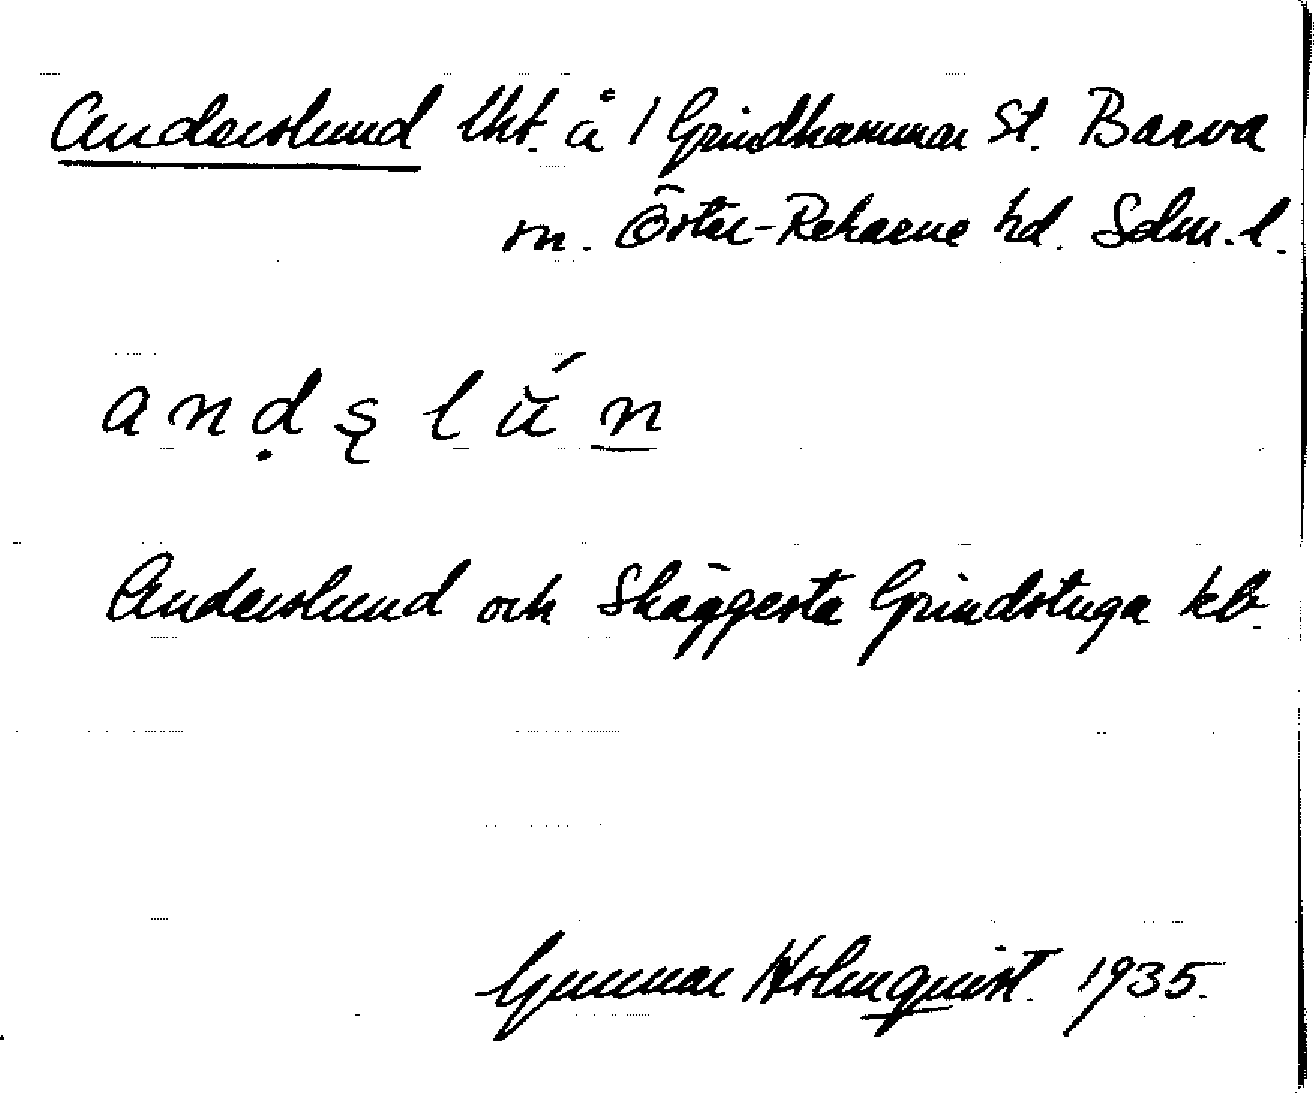 Anderslund lht. å 1 Grindhammar St. Barva
sn. Öster-Rekarne hd. Sdm. l.
Anderslund och Skäggesta Grindstuga kb.
Gunnar Holmquist. 1935.